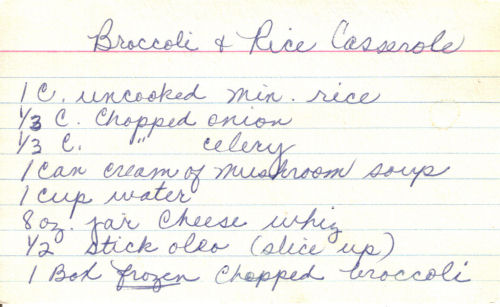 Broccoli & Rice Casserole
1 C. uncooked min. rice
1/3 C. Chopped onion
1/3 C. " celery
1 Can cream of mushroom soup
1 cup water
8 oz. jar Cheese whiz
1/2 stick oleo (slice up)
1 Box frozen Chopped broccoli